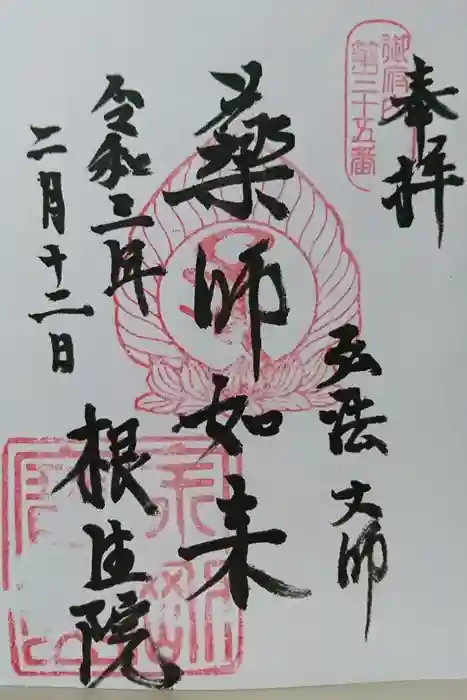 奉拝
御府内
第三十五番
弘法大師
薬師如来
令和三年
二月十二日
根生院